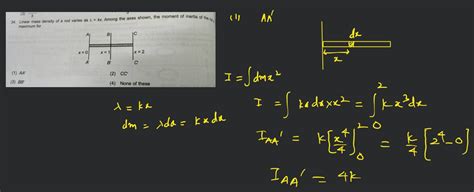 34. Linear mass density of a rod varies as λ = kx. Among the axes shown, the moment of inertia of the
maximum for
A B C
x = 0 x = 1 x = 2
A' B' C'
(1) AA' (2) CC'
(3) BB' (4) None of these
λ = kx
dm = λdx = kxdx
(1) AA'
dx
x
I = ∫dmx²
I = ∫kxdx×x² = ∫₀² kx³dx
I_AA' = k[x⁴/4]₀² = k/4 [2⁴-0]
I_AA' = 4k